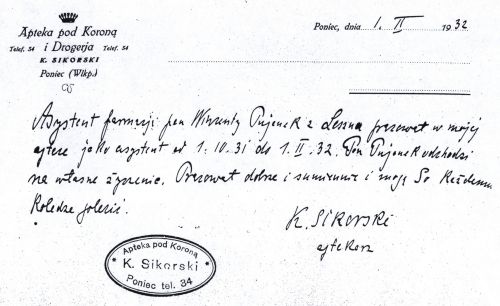 Apteka pod Koroną
i Drogerja
Telef. 34 Telef. 34
K. SIKORSKI
Poniec (Wlkp.)
Poniec, dnia 1. II 1932
Asystent farmacji pan Wincenty Pujanek z Leszna pracował w mojej
aptece jako asystent od 1.10.31 do 1.II.32. Pan Pujanek odchodzi
na własne życzenie. Pracował dobrze i sumiennie i mogę Go każdemu
koledze polecić.
K. Sikorski
aptekarz
Apteka pod Koroną
K. Sikorski
Poniec tel. 34